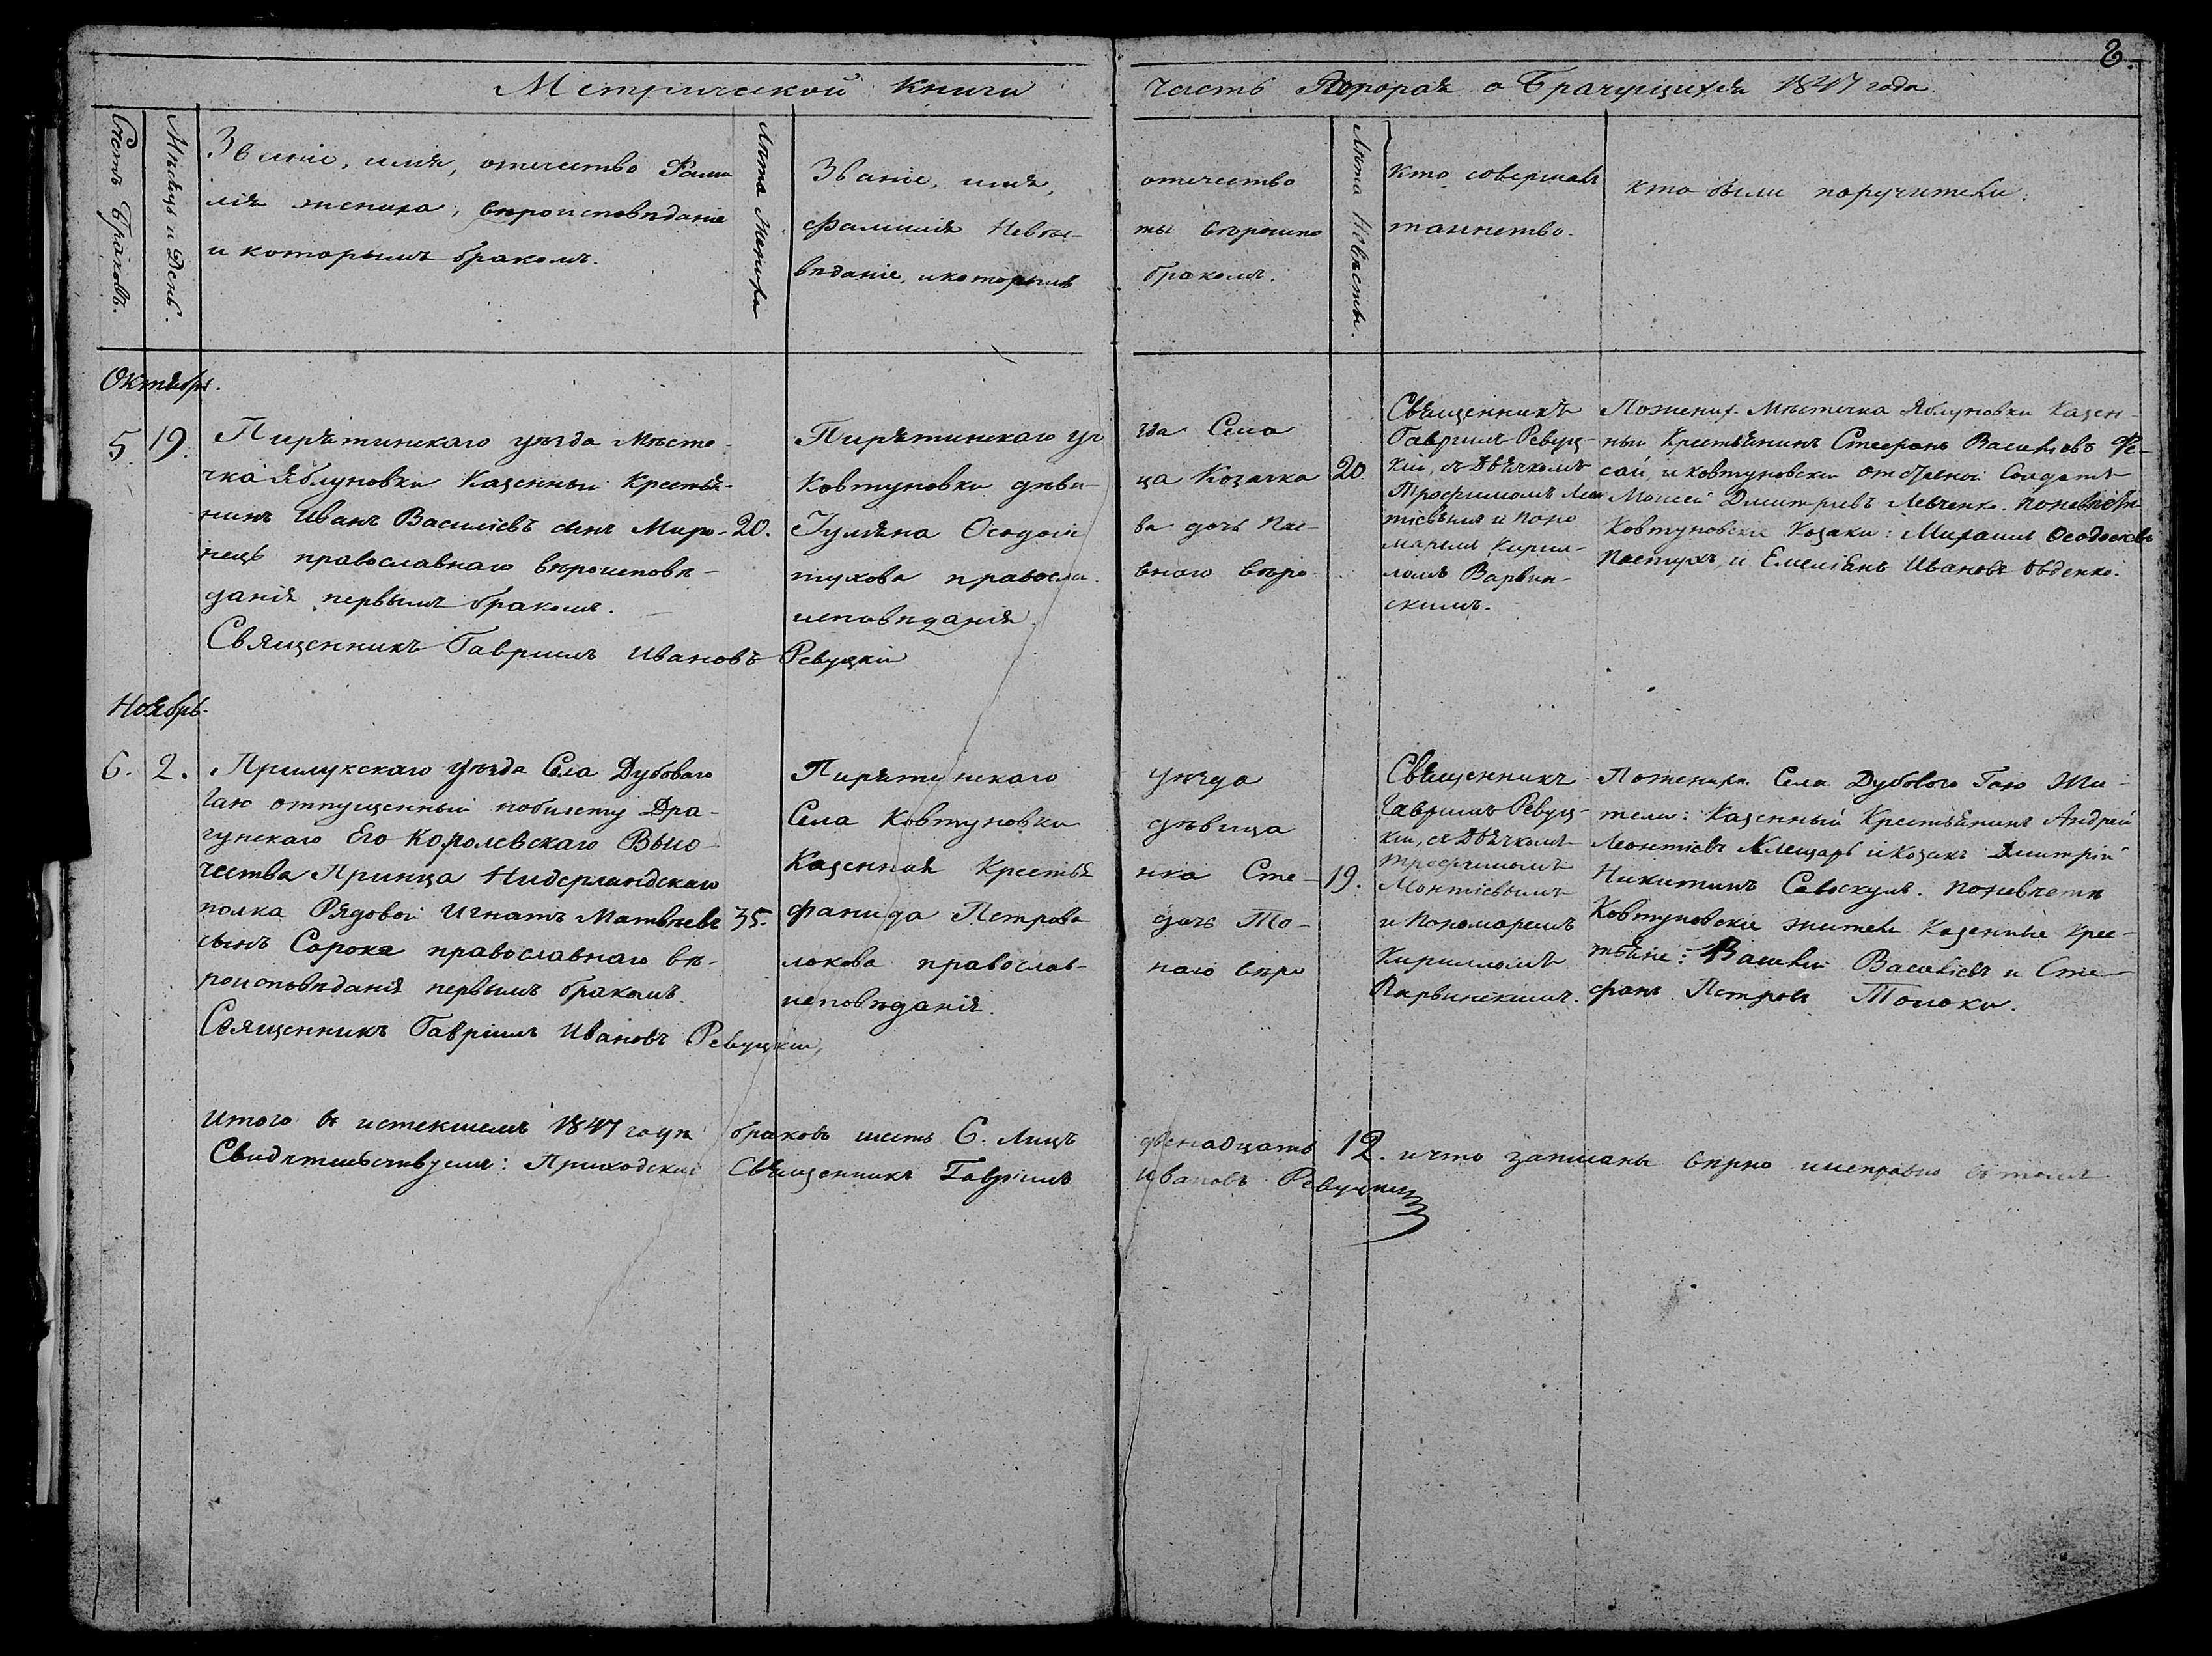 8.
Метрической Книги часть Вторая о Брачущихся 1847 года.
Счетъ Браковъ.
Мѣсяцъ и День.
Званіе, имя, отечество Фами
лія жениха, вѣроисповѣданіе
и которымъ бракомъ.
Лѣта Жениха
Званіе, имя, отечество
Фамилія Невѣс- ты вѣроиспо
вѣданіе, и которымъ бракомъ.
Лѣта Невѣсты.
Кто совершалъ
таинство.
Кто были поручители.
Октябрь.
5. 19.
Пирятинскаго уѣзда Мѣсте-
чка Яблуновки Казенный Крестья-
нинъ Иванъ Василіевъ сынъ Миро-
нецъ православнаго вѣроисповѣ-
данія первымъ бракомъ.
Священникъ Гавріилъ Ивановъ Ревуцкій
20.
Пирятинскаго уѣ зда Села
Ковтуновки дѣви- ца Козачка
Іуліяна Ѳеодосіе ва дочь Пас-
тухова правосла внаго вѣро
исповѣданія.
20.
Священникъ
Гавріилъ Ревуц-
кій, съ Дьячкомъ
Трофимомъ Леон
тіевымъ и Поно
маремъ Кирил-
ломъ Варвин-
скимъ.
Пожених. Мѣстечка Яблуновки Казен-
ный Крестьянинъ Стефанъ Василіевъ
и Ковтуновскій Солдатъ
Моисей Димитріевъ Левченко. Поневѣстѣ
Ковтуновскіе Козаки: Михаилъ Ѳеодосіевъ
Пастухъ, и Емеліянъ Ивановъ Овденко.
Ноябрь.
6. 2.
Прилукскаго уѣзда Села Дубоваго
Гаю отпущенный побилету Дра-
гунскаго Его Королевскаго Высо-
чества Принца Нидерландскаго
полка Рядовой Игнатъ Матвѣевъ
сынъ Сорока православнаго вѣ-
роисповѣданія первымъ бракомъ.
Священникъ Гавріилъ Ивановъ Ревуцкій,
35.
Пирятинскаго Уѣзда
Села Ковтуновки дѣвица
Казенная Крестья нка Сте-
фанида Петрова дочь То-
локова православ- наго вѣро
исповѣданія.
19.
Священникъ
Гавріилъ Ревуц-
кій, съ Дьячкомъ
Трофимомъ
Леонтіевымъ
и Пономаремъ
Кирилломъ
Варвинскимъ.
Пожениху Села Дубового Гаю Жи-
тели: Казенный Крестьянинъ Андрей
Леонтіевъ Клещарь и Козакъ Димитрій
Никитинъ Савоскулъ. Поневѣстѣ
Ковтуновскіе жители Казенные Крес-
тьяне: Василій Василіевъ и Сте-
фанъ Петровъ Толоки.
Итого въ истекшемъ 1847 годѣ браковъ шесть 6. Лицъ двенадцать 12. и что записаны вѣрно исправно въ томъ
Свидѣтельствуемъ: Приходскій Священникъ Гавріилъ Ивановъ Ревуцкій